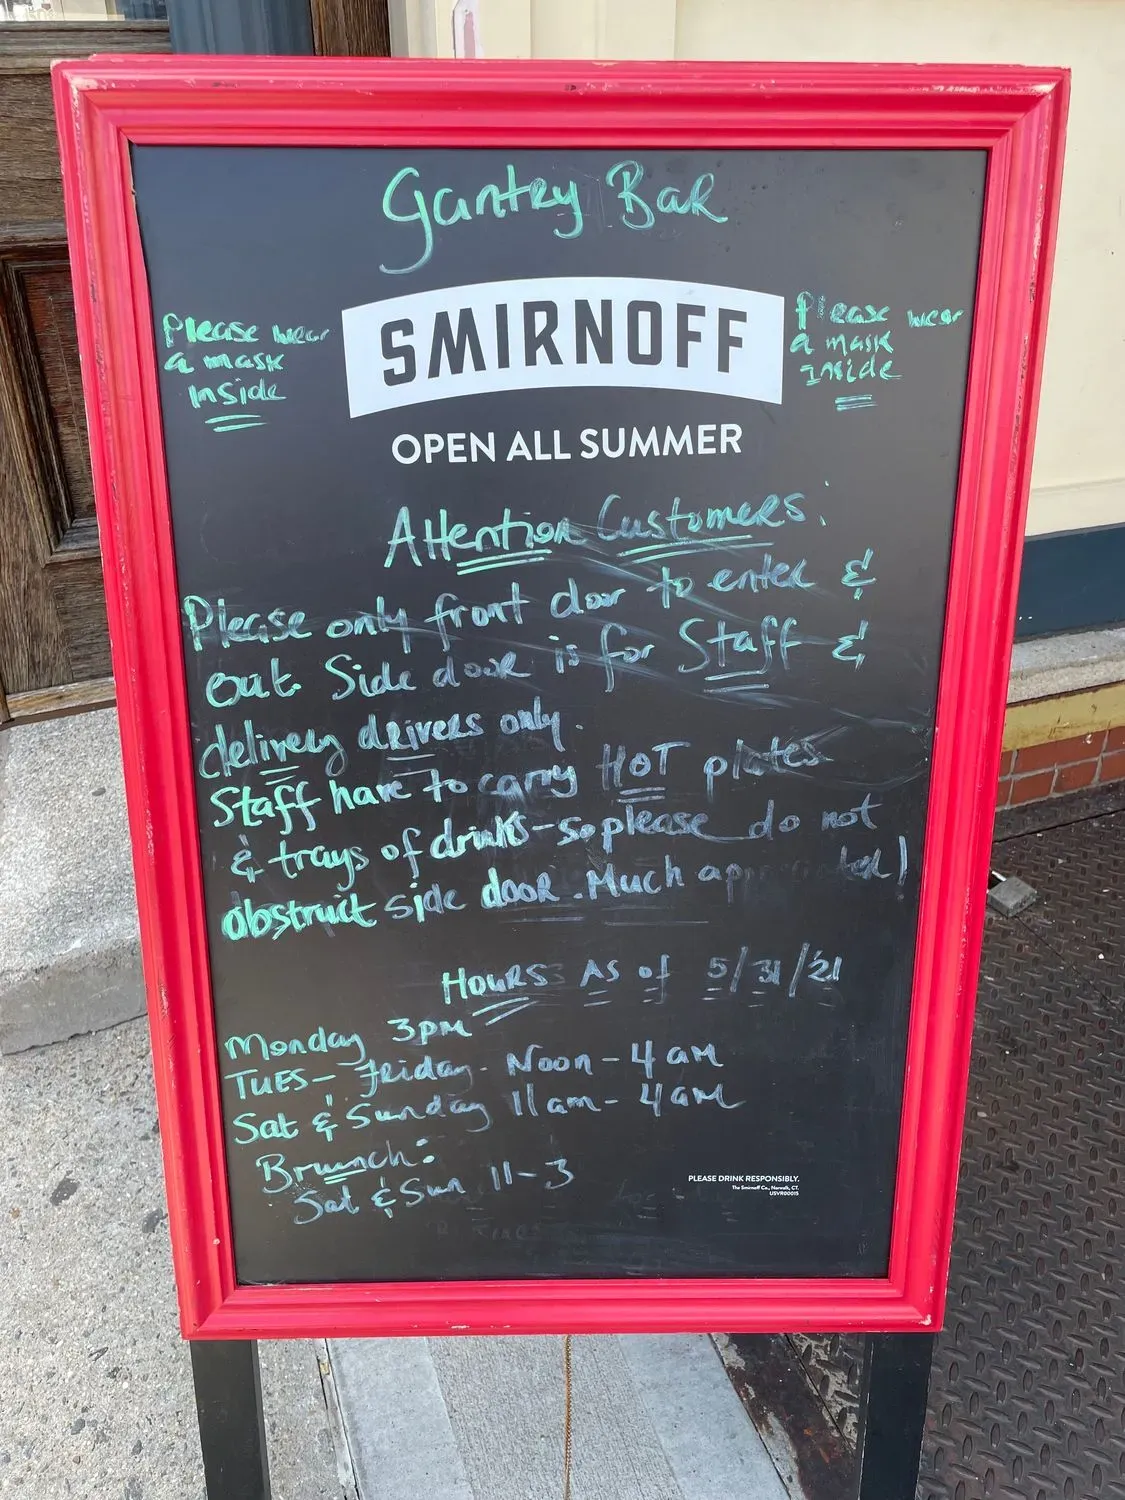 Gantry Bar
Please wear
a mask
Inside
SMIRNOFF
Please wear
a mask
Inside
OPEN ALL SUMMER
Attention Customers:
Please only front door to enter &
out. Side door is for Staff &
delivery drivers only.
Staff have to carry HOT plates
& trays of drinks-so please do not
obstruct side door. Much
HOURS AS of 5/31/21
Monday 3pm
TUES- Friday- Noon-4am
Sat & Sunday 11am-4am
Brunch:
Sat & Sun 11-3
PLEASE DRINK RESPONSIBLY.
The Smirnoff Co., Norwalk, CT.
USVR00015